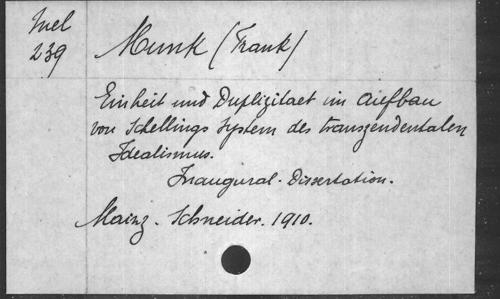 Mel
239
Munk (Frank)
Einheit und Duplizitaet im Aufbau
von Schellings System des transzendentalen
Idealismus.
Inaugural-Dissertation.
Mainz. Schneider. 1910.